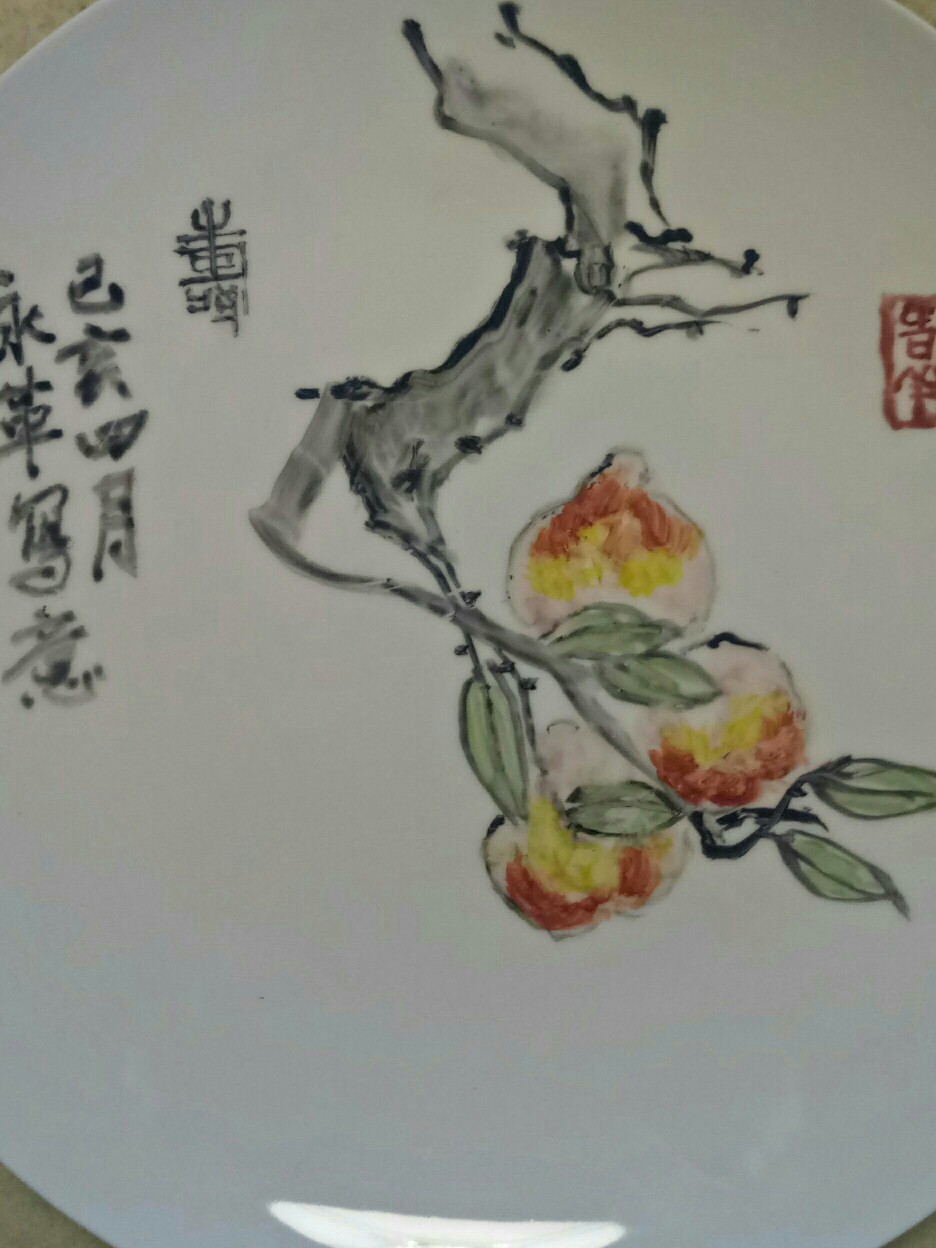 壽
己亥四月
永革写意